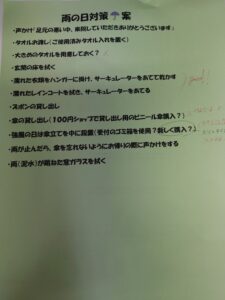 雨の日対策☂案
・声かけ「足元の悪い中、来院していただきありがとうございます」
・タオルお渡し(ご使用済みタオル入れを置く)
・大きめのタオルを用意しておく?
・玄関の床を拭く
・濡れた衣類をハンガーに掛け、サーキュレーターをあてて乾かす
・濡れたレインコートを拭き、サーキュレーターをあてる
・ズボンの貸し出し
・傘の貸し出し(100円ショップで貸し出し用のビニール傘購入?)
・強風の日は傘立てを中に設置(受付のゴミ箱を使用?新しく購入?)
・雨が止んだら、傘を忘れないようにお帰りの際に声かけをする
・雨(泥水)が跳ねた窓ガラスを拭く